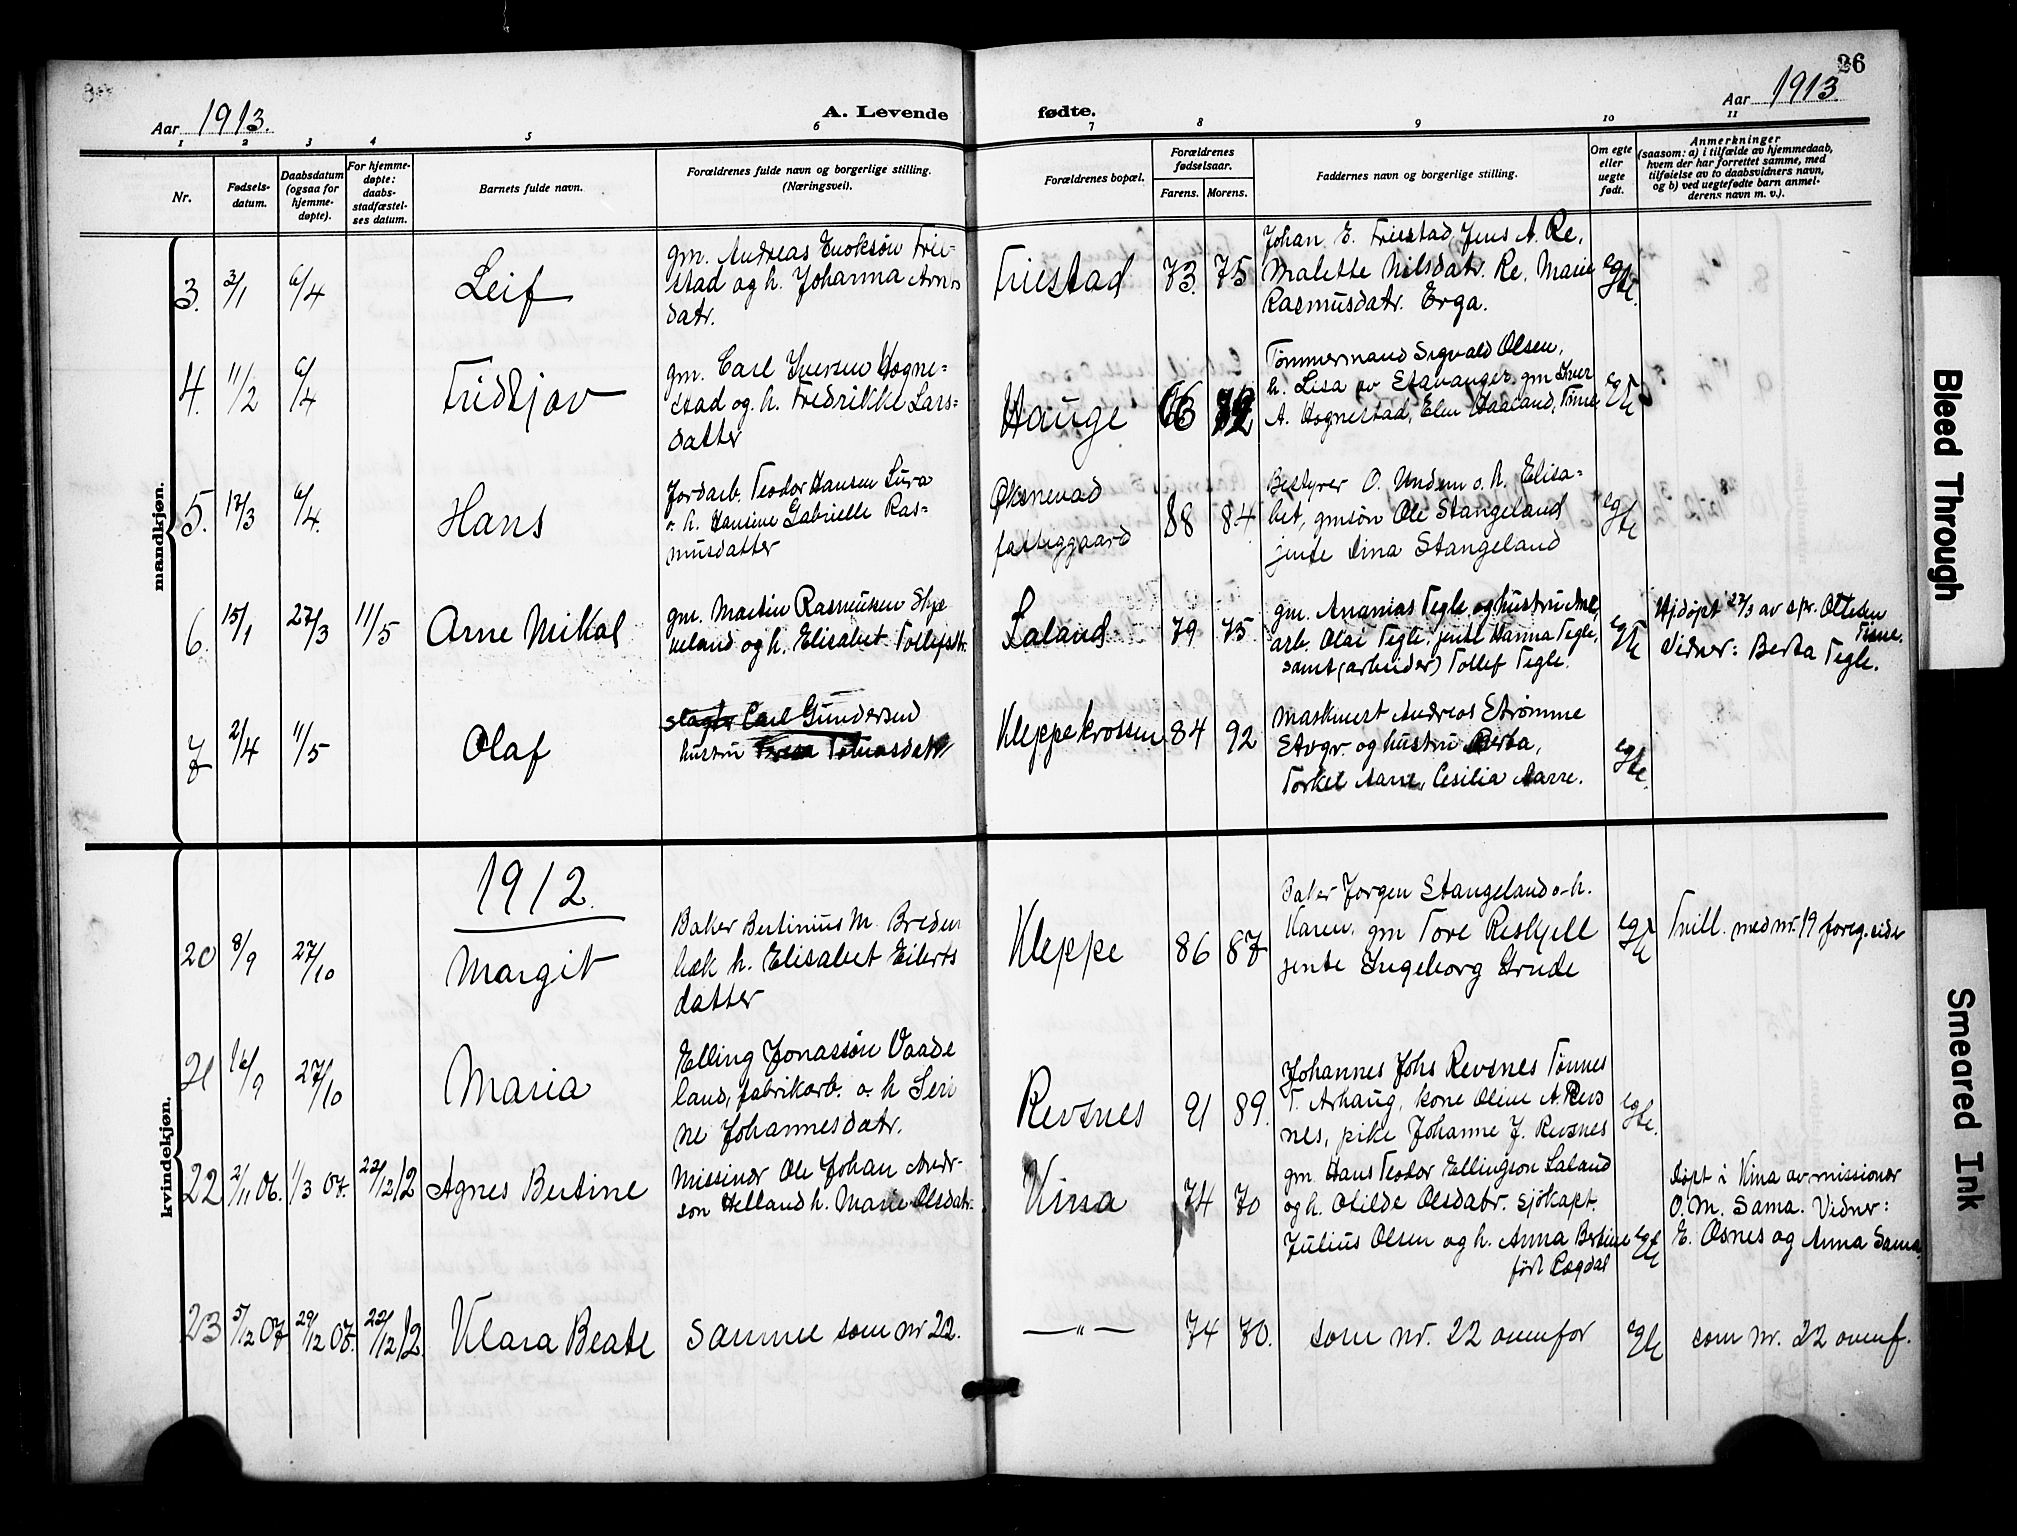 26
Aar 1913.
A. Levende
fødte.
Aar 1913
1 2 3 4 5 6 7 8 9 10 11
Nr.
Fødsels-
datum.
Daabsdatum
(ogsaa for
hjemme-
døpte).
For hjemme-
døpte:
daabs-
stadfæstel-
ses datum.
Barnets fulde navn.
Forældrenes fulde navn og borgerlige stilling.
(Næringsvei).
Forældrenes bopæl.
Forældrenes
fødselsaar.
Farens. Morens.
Faddernes navn og borgerlige stilling.
Om egte
eller
uegte
født.
Anmerkninger
(saasom: a) i tilfælde av hjemmedaab,
hvem der har forrettet samme, med
tilføielse av to daabsvidners navn,
og b) ved uegtefødte barn anmel-
derens navn m. v.).
mandkjøn.
3. 3/1 6/4 Leif
gm. Andreas Enoksøn Frie-
stad og h. Johanna Arns
datr.
Friestad 73. 75
Johan E. Friestad Jens A. Re,
Malette Nilsdatr. Re. Marie
Rasmusdatr. Erga.
egte.
4. 11/2 6/4 Fridtjov
gm. Carl Iversen Hogne=
stad og h. Fredrikke Lars=
datter
Hauge 66 72
Tømmermand Sigvald Olsen,
h. Lisa av Stavanger, gm Iver
A. Hognestad, Elen Haaland, Time
egte
5. 17/3 6/4. Hans
Jordarb. Teodor Hansen Lura
o. h. Hansine Gabrielle Ras=
musdatter
Øksnevad
fattiggaard
88 84
Bestyrer O. Undem o. h. Elisa=
bet, gmsøn Ole Stangeland
jente Dina Stangeland
egte
6. 15/1 27/3 11/5 Arne Mikal
gm. Martin Rasmussen Skjæ
veland og h. Elisabet Tollefsdtr.
Laland 79 75
gm. Ananias Tegle og hustru Ane,
arb. Olai Tegle, jente Hanna Tegle,
samt (arbeider) Tollef Tegle.
egte
Hjdøpt 27/3 av spr. Ottesen
Time.
Vidner: Berta Tegle.
7 2/4 11/5 Olaf
slagter Carl Gundersen
hustru Tomasdatr
Kleppekrossen 84 92
Maskinist Andreas Strømme
Stvgr. og hustru Berta,
Torkel Aarre, Cesilia Aarre.
egte.
kvindekjøn.
1912.
20 8/9 27/10 Margit
Baker Bertinius M. Breden
bæk h. Elisabet Eilerts
datter
Kleppe 86 87
Baker Jørgen Stangeland o. h.
Karen, gm Tore Reskjell
jente Ingeborg Grude
egte
Tvill. med nr. 19 foreg. side
21 16/9 27/10 Maria
Elling Jonassøn Vaade
land, fabrikarb. o. h Seri
ne Johannesdatr.
Revsnes 91 89.
Johannes Johs Revsnes Tønnes
T. Arhaug, kone Oline A. Revs
nes, pike Johanne J. Revsnes
egte.
22 2/11 06. 1/3 07. 22/12 12 Agnes Bertine
Missionær Ole Johan Andr-
son Helland h. Marie Olsdatr.
Kina 74 70
gm. Hans Teodor Ellingson Laland
og h. Otilde Olsdatr. sjökapt.
Julius Olsen og h. Anna Bertine
født Øgdal
egte
døpt i Kina av missionær
O. M. Sama. Vidner:
E. Osnes og Anna Sama.
23 5/12 07 29/12 07. 22/12 12. Klara Beate
Samme som nr 22.
—"— 74 70.
som nr. 22 ovenfor
egte
som nr. 22 ovenf.
Bleed Through
Smeared Ink